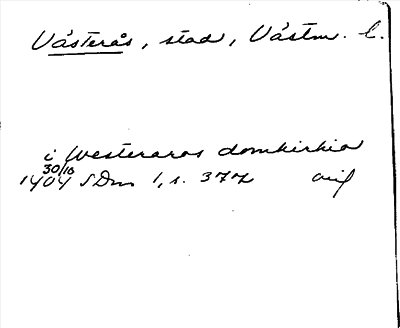 Västerås, stad, Västm. l.
i Westeraros domkirkia
30/10
1404 SDns 1, s. 377 orig